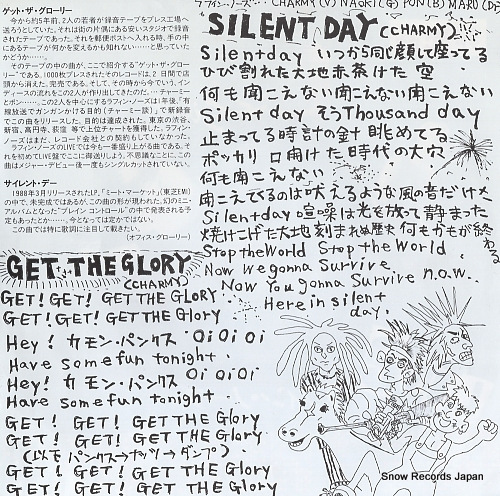 ゲット・ザ・グローリー
今から約5年前、2人の若者が録音テープをプレス工場へ
送ろうとしていた。それは街の片隅にある安いスタジオで録音
されたテープであった。それを郵便ポストへ入れる時、手の中
にあるテープが何かを変えるかも知れない……と思っていた
かどうか……。
そのテープの中の曲が、ここで紹介する“ゲット・ザ・グローリ
ー”である。1000枚プレスされたそのレコードは、2日間で店
頭から消えた。完売である。そして、その時から今でいう、イン
ディーズの流れをこの2人が作り出してきたのだ。…チャーミー
とポン……。この2人を中心にするラフィン・ノーズは1年後、「有
線放送でガンガンかける目的(チャーミー談)」で新録音
でこの曲をリリースした。目的は達成された。東京の渋谷、
新宿、高円寺、荻窪 等で上位チャートを獲得した。ラフィン・
ノーズはまだ、レコード会社との契約もしていなかった。
ラフィン・ノーズのLIVEでは今も一番盛り上がる曲である。そ
れを初めてLIVE盤でここに御送りしよう。不思議なことに、この
曲はメジャー・デビュー後一度もシングルカットされていない。
サイレント・デー
1988年3月リリースされたLP、「ミート・マーケット」(東芝EMI)
の中で、未完成ではあるが、この曲の形が現われた。幻のミニ
アルバムとなった“ブレイン コントロール”の中で発表される予
定もあったとか……。今となっては定かではない。
この曲では特に歌詞に注目して戴きたい。
(オフィス・グローリー)
GET THE GLORY
(CHARMY)
GET! GET! GET THE GLORY
GET! GET! GET THE GLORY
Hey! カモン・パンクス Oi Oi Oi
Have some fun tonight.
Hey! カモン・パンクス Oi Oi Oi
Have some fun tonight.
GET! GET! GET THE Glory
GET! GET! GET THE Glory
(以下 パンクス→ナッツ→ダンプ)
GET! GET! GET THE Glory
GET! GET! GET THE Glory
ラフィン・ノーズ CHARMY(V) NAOKI(G) PON(B) MARU(Dr)
SILENT DAY (CHARMY)
Silent day いつから同じ顔して座ってる
ひび割れた大地 赤茶けた 空
何も聞こえない 聞こえない 聞こえない
Silent day そう Thousand day
止まってる時計の針 眺めてる
ポッカリ 口開けた 時代の大穴
何も聞こえない
聞こえてくるのは吠えるような風の音だけさ
Silent day 喧噪は光を放って静まった
焼けこげた大地 刻まれぬ歴史 何もかもが終わる
Stop the World Stop the World
Now We gonna Survive
Now You gonna Survive n.o.w..
Here in silent
day.
Snow Records Japan